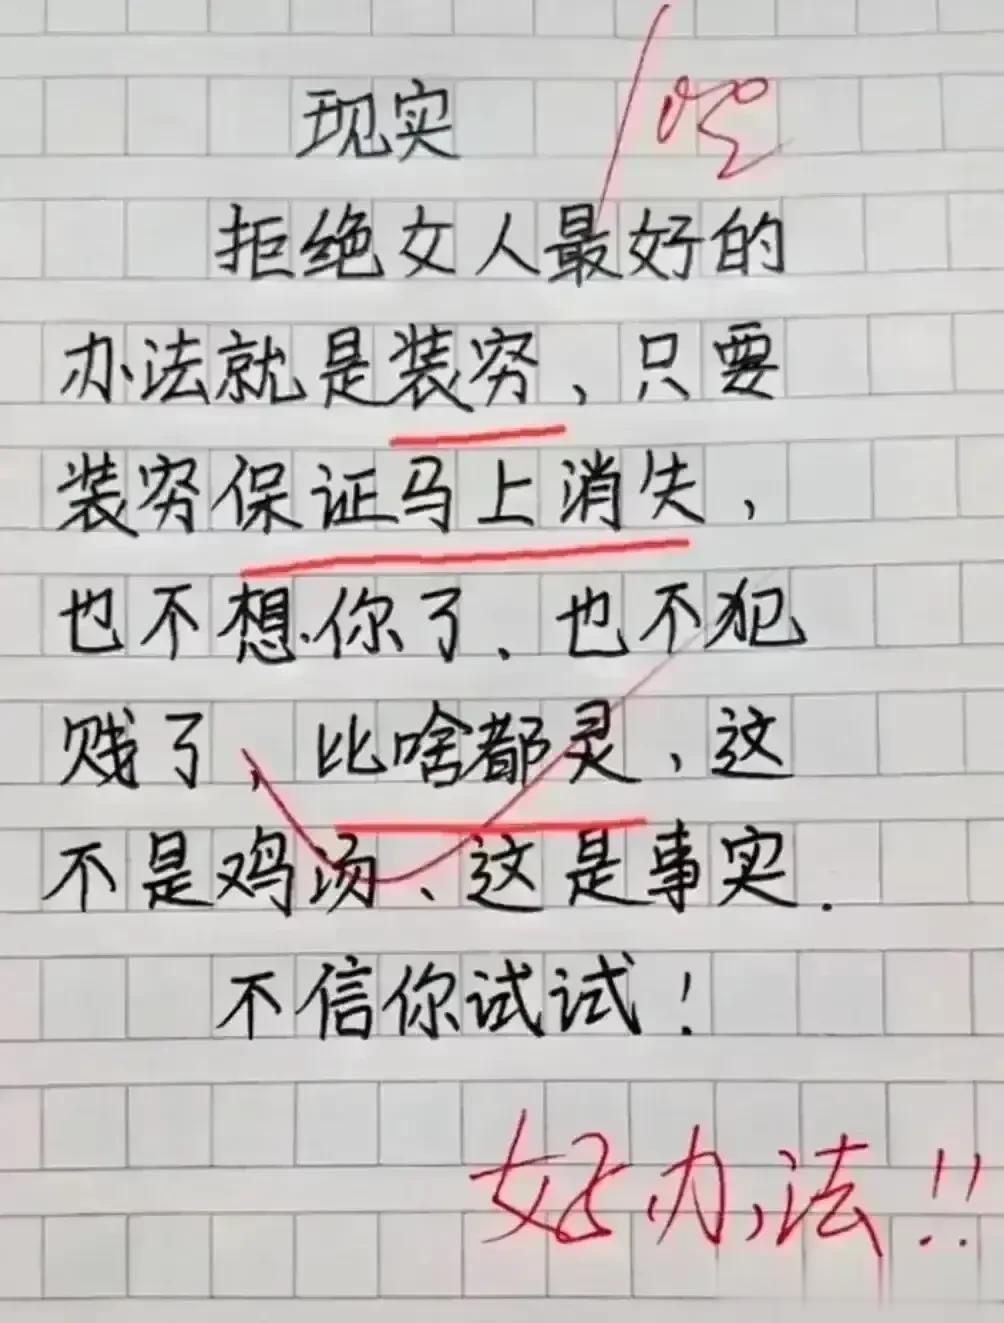 现实
拒绝女人最好的
办法就是装穷、只要
装穷保证马上消失,
也不想你了、也不犯
贱了、比啥都灵、这
不是鸡汤、这是事实.
不信你试试!
好办法!!